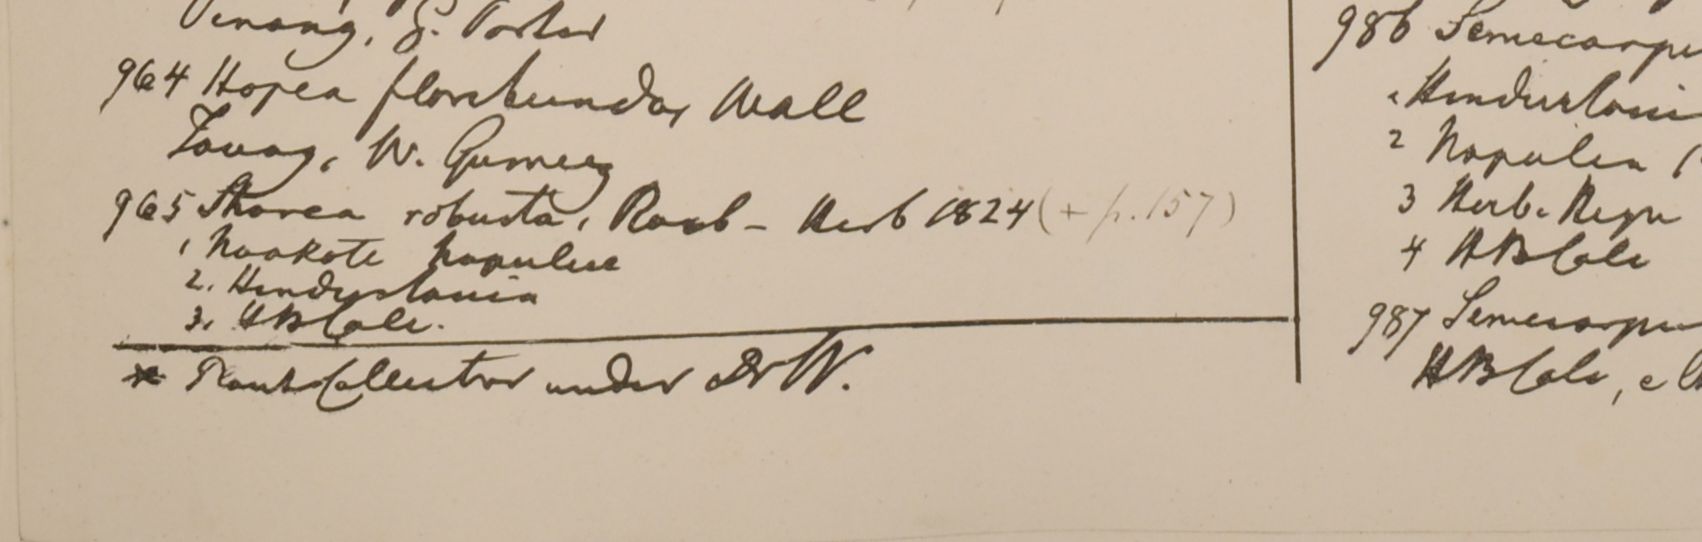 Penang, G. Porter
964 Hopea floribunda, Wall
Tavoy, W. Gomez
965 Shorea robusta, Roxb - Herb 1824 (+ p. 157)
1 Noakote Napulia
2. Hindustania
3, HBCalc.
* Plant Collector under Dr W.
986 Semecarpu
1 Hindustani
2 Napulia (
3 Herb. Heyn
4 HBCalc
987 Semecarpu
HBCalc, e